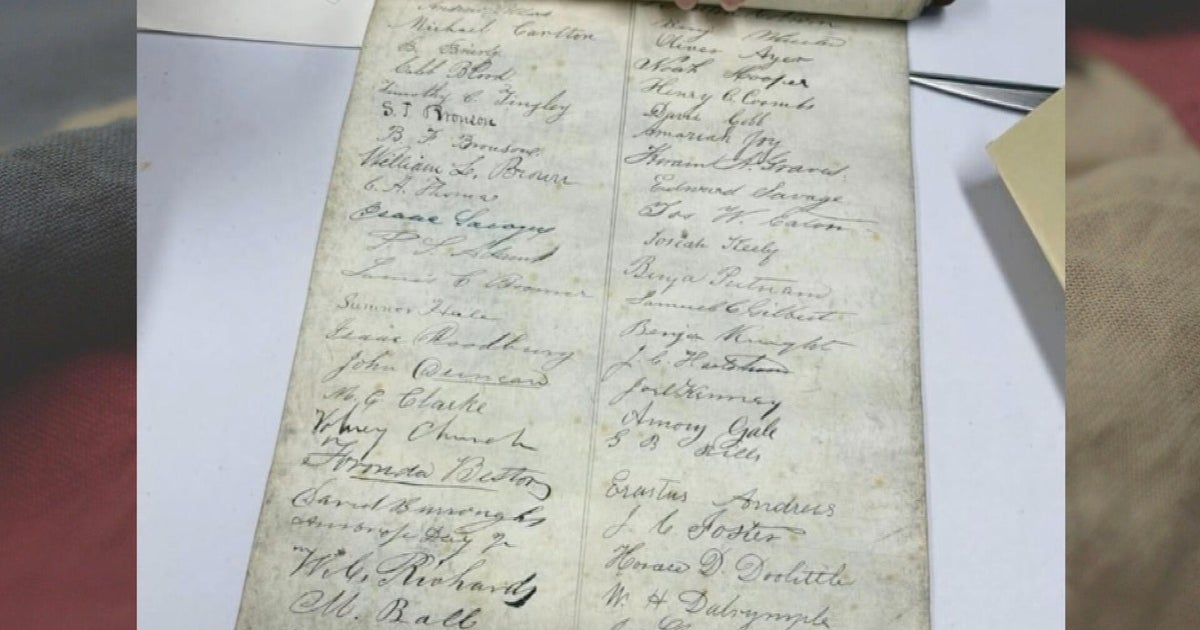 Michael Carlton
B. Brierly
Caleb Blood
Timothy C. Tingley
S. T. Bronson
B F Bronson
William L. Brown
C. A. Thomas
Isaac Sawyer
James C Boomer
Sumner Hale
Isaac Woodbury
John Duncan
M. G Clarke
Volney Church
Foronda Bestor
David Burroughs
Ambrose Day Jr
W. C. Richards
M. Ball
Oliver Ayer
Noah Hooper
Henry C. Coombs
David Cobb
Amariah Joy
Hiram A. Graves.
Edward Savage
Jos W. Eaton
Josiah Keely
Benja Putnam
Samuel C Gilbert
Benja Knight
J. C. Hartshorn
Joel Kenney
Amory Gale
S B
Erastus Andrews
J C Foster
Horace D. Doolittle
W. H Dalrymple